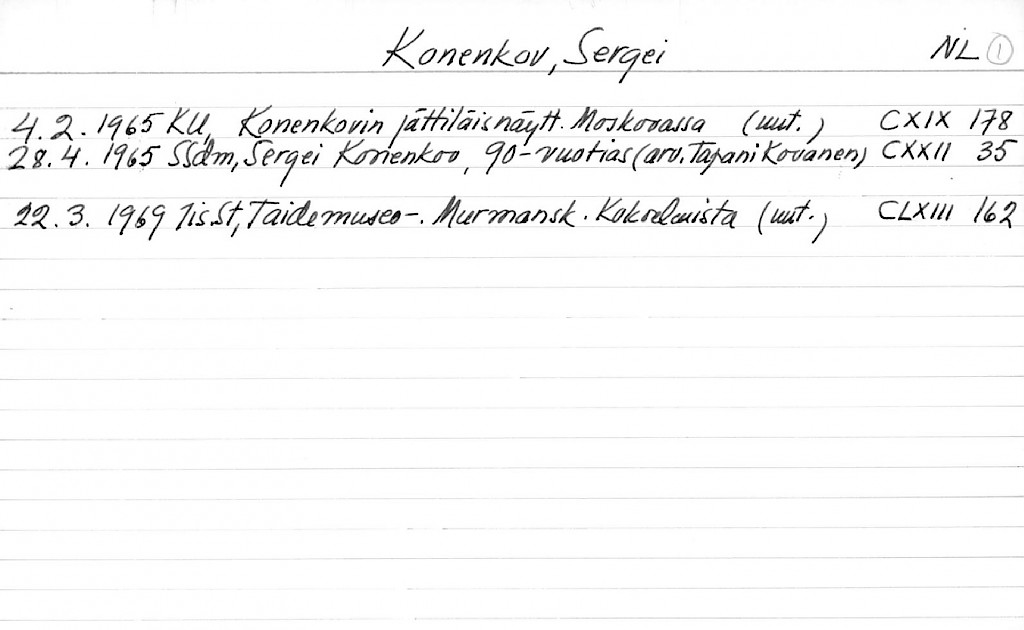 Konenkov, Sergei NL 1
4.2.1965 KU, Konenkovin jättiläisnäytt. Moskovassa (uut.) CXIX 178
28.4.1965 SSdm, Sergei Konenkov, 90-vuotias (arv. Tapani Kovanen) CXXII 35
22.3.1969 Iis.St, Taidemuseo-. Murmansk. Kokoelmista (uut.) CLXIII 162